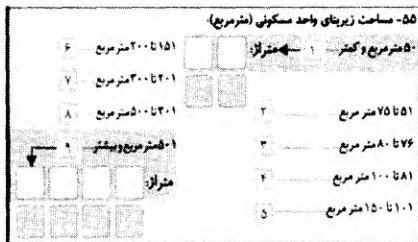 ۵۵- مساحت زیربنای واحد مسکونی (مترمربع):
۵۰ مترمربع و کمتر ۱ متراژ:
۵۱ تا ۷۵ متر مربع ۲
۷۶ تا ۸۰ متر مربع ۳
۸۱ تا ۱۰۰ متر مربع ۴
۱۰۱ تا ۱۵۰ متر مربع ۵
۱۵۱ تا ۲۰۰ متر مربع ۶
۲۰۱ تا ۳۰۰ متر مربع ۷
۳۰۱ تا ۵۰۰ متر مربع ۸
۵۰۱ متر مربع و بیشتر ۹
متراژ: